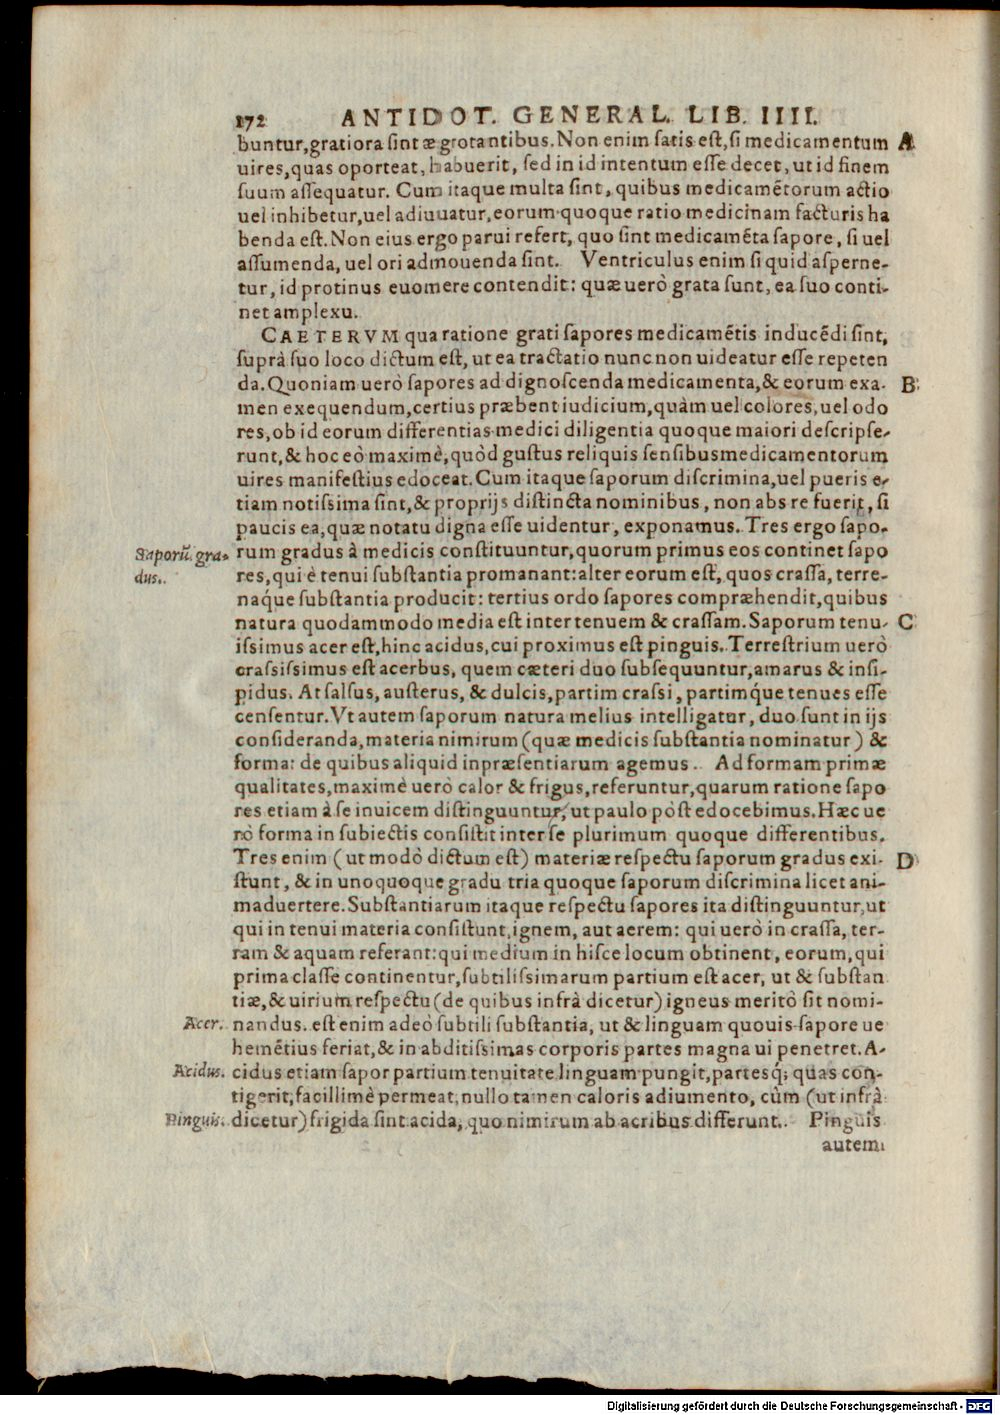 172 ANTIDOT. GENERAL. LIB. IIII.
buntur, gratiora sint ægrotantibus. Non enim satis est, si medicamentum A
uires, quas oporteat, habuerit, sed in id intentum esse decet, ut id finem
suum assequatur. Cum itaque multa sint, quibus medicamẽtorum actio
uel inhibetur, uel adiuuatur, eorum quoque ratio medicinam facturis ha
benda est. Non eius ergo parui refert, quo sint medicamẽta sapore, si uel
assumenda, uel ori admouenda sint. Ventriculus enim si quid asperne-
tur, id protinus euomere contendit: quæ uerò grata sunt, ea suo conti-
net amplexu.
CAETERVM qua ratione grati sapores medicamẽtis inducẽdi sint,
suprà suo loco dictum est, ut ea tractatio nunc non uideatur esse repeten
da. Quoniam uerò sapores ad dignoscenda medicamenta, & eorum exa- B
men exequendum, certius præbent iudicium, quàm uel colores, uel odo
res, ob id eorum differentias medici diligentia quoque maiori descripse-
runt, & hoc eò maximè, quòd gustus reliquis sensibus medicamentorum
uires manifestius edoceat. Cum itaque saporum discrimina, uel pueris e-
tiam notissima sint, & proprijs distincta nominibus, non abs re fuerit, si
paucis ea, quæ notatu digna esse uidentur, exponamus. Tres ergo sapo-
Saporũ gra- rum gradus à medicis constituuntur, quorum primus eos continet sapo
dus. res, qui è tenui substantia promanant: alter eorum est, quos crassa, terre-
náque substantia producit: tertius ordo sapores compræhendit, quibus
natura quodammodo media est inter tenuem & crassam. Saporum tenu- C
issimus acer est, hinc acidus, cui proximus est pinguis. Terrestrium uerò
crassissimus est acerbus, quem cæteri duo subsequuntur, amarus & insi-
pidus. At salsus, austerus, & dulcis, partim crassi, partimq́ue tenues esse
censentur. Vt autem saporum natura melius intelligatur, duo sunt in ijs
consideranda, materia nimirum (quæ medicis substantia nominatur) &
forma: de quibus aliquid inpræsentiarum agemus. Ad formam primæ
qualitates, maximè uerò calor & frigus, referuntur, quarum ratione sapo
res etiam à se inuicem distinguuntur, ut paulo pòst edocebimus. Hæc ue
rò forma in subiectis consistit inter se plurimum quoque differentibus.
Tres enim (ut modò dictum est) materiæ respectu saporum gradus exi- D
stunt, & in unoquoque gradu tria quoque saporum discrimina licet ani-
maduertere. Substantiarum itaque respectu sapores ita distinguuntur, ut
qui in tenui materia consistunt, ignem, aut aerem: qui uerò in crassa, ter-
ram & aquam referant: qui medium in hisce locum obtinent, eorum, qui
prima classe continentur, subtilissimarum partium est acer, ut & substan
tiæ, & uirium respectu (de quibus infrà dicetur) igneus meritò sit nomi-
Acer. nandus. est enim adeò subtili substantia, ut & linguam quouis sapore ue
hemẽtius feriat, & in abditissimas corporis partes magna ui penetret. A-
Acidus. cidus etiam sapor partium tenuitate linguam pungit, partesq́; quas con-
tigerit, facillimè permeat, nullo tamen caloris adiumento, cùm (ut infrà
Pinguis. dicetur) frigida sint acida, quo nimirum ab acribus differunt. Pinguis
autem
Digitalisierung gefördert durch die Deutsche Forschungsgemeinschaft - DFG